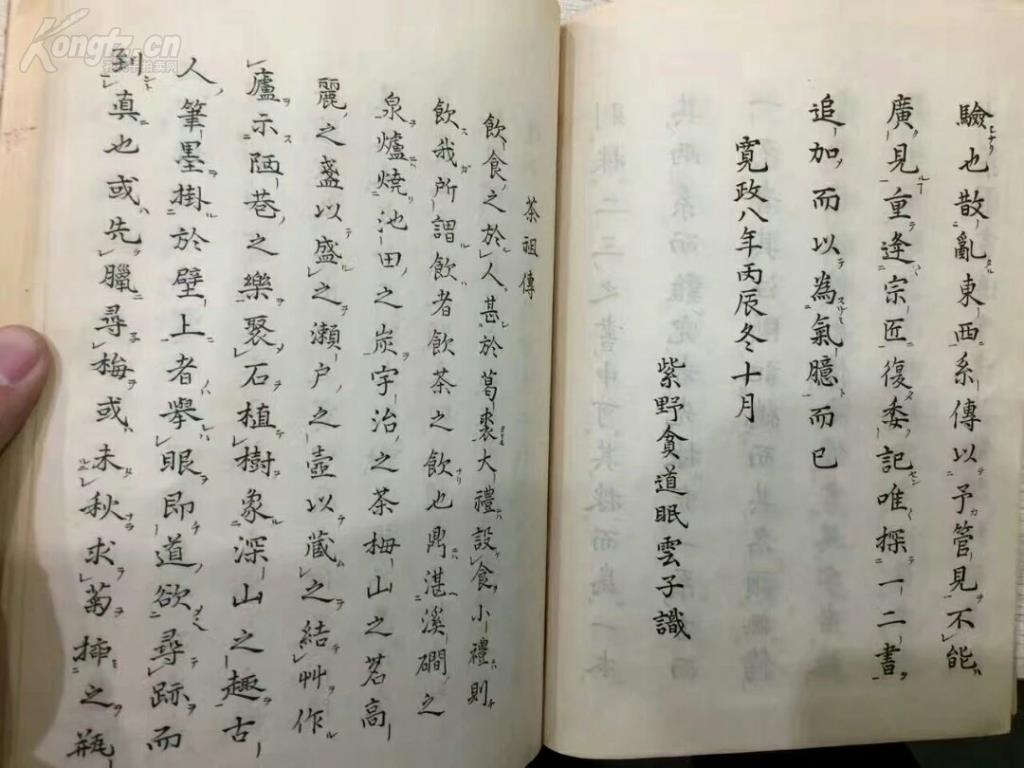 驗也散亂東西系傳以予管見不能
廣見重逢宗匠復委記唯探一二書
追加而以為氣臆而已
寛政八年丙辰冬十月
紫野貧道眠雲子識
茶祖傳
飲食之於人甚於葛裘大禮設食小禮則
飲我所謂飲者飲茶之飲也鼎湛溪磵之
泉爐燒池田之炭宇治之茶梅山之茗高
麗之盞以盛之瀬戸之壺以蔵之結艸作
廬示陋巷之樂聚石植樹象深山之趣古
人筆墨掛於壁上者舉眼即道欲尋跡而
到真也或先臘尋梅或未秋求菊挿之瓶
Kongfz.cn